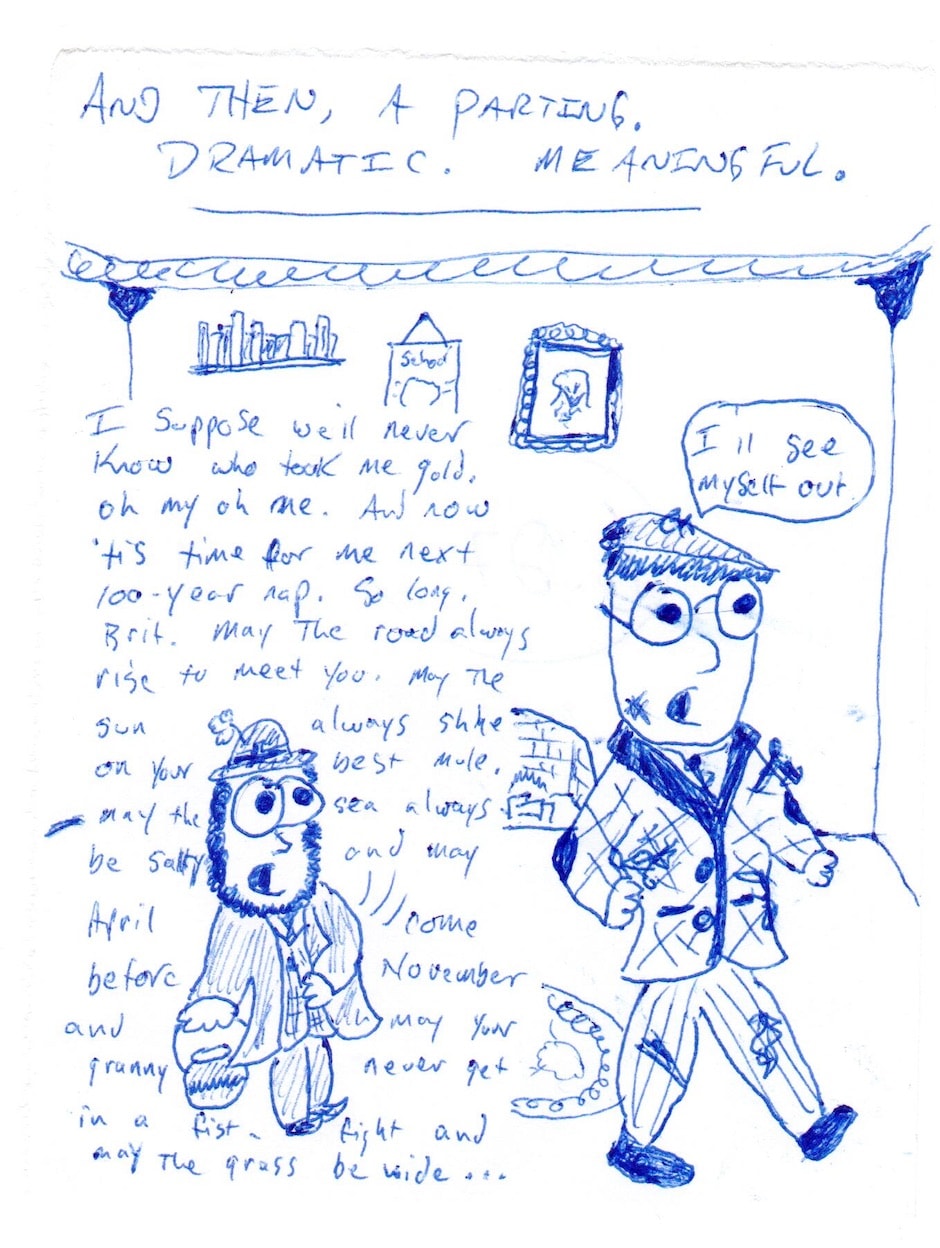 AND THEN, A PARTING.
DRAMATIC. MEANINGFUL.
School
I Suppose we'll never
Know who took me gold.
oh my oh me. And now
'tis time for me next
100-year nap. So long,
Brit. May The road always
rise to meet you. May The
sun always shine
on your best mule.
may the sea always
be salty and may
April come
before November
and may your
granny never get
in a fist-fight and
may The grass be wide...
I'll see
myself out.